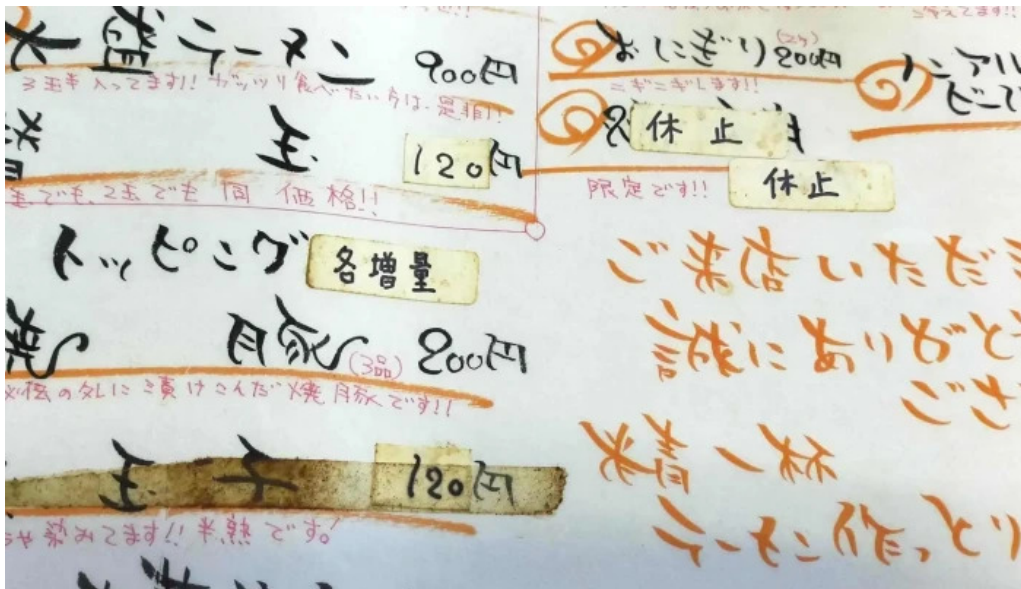 大盛ラーメン 900円
3玉も入ってます!! ガッツリ食べたい方は、是非!!
替 玉 120円
玉でも、2玉でも同価格!!
トッピング 各増量
焼 豚 (3品) 200円
に漬けこんだ焼豚です!!
玉子 120円
染みてます!! 半熟です。
おにぎり (2ヶ) 200円
ニギニギします!!
休止
限定です!!
休止
ノンアル
ビー
ご来店いただき
誠にありがとう
ござ
精一杯
ラーメン作った